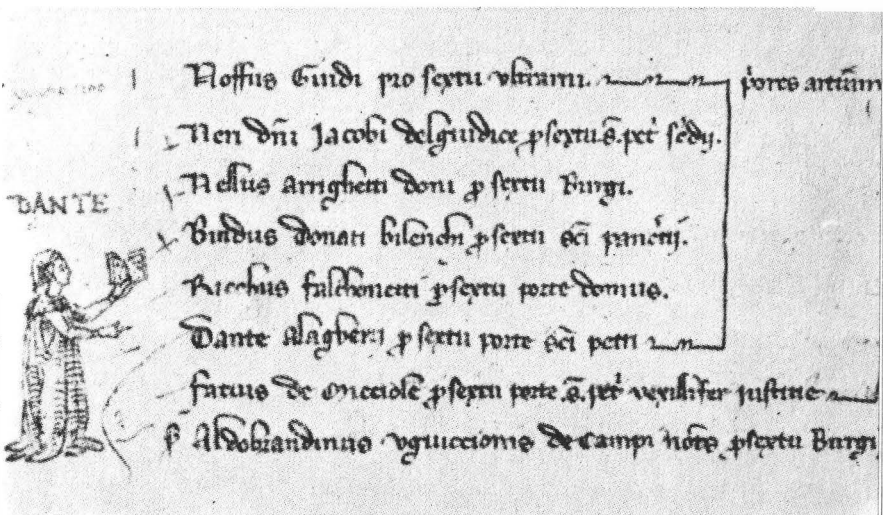 Noffus Guidi pro sextu ultrarni. p'ores artium
Neri dñi Jacobi delguidice p sextu S. pet' sc'dij.
Nellus arrighetti doni p sextu Burgi.
DANTE
Bindus Donati bilenchi p sextu sc̄i panc'tij.
Ricchus falchonetti p sextu porte domus.
Dante Alagherii p sextu porte sc̄i petri
fatius de p sextu porte S. pet' vexillifer iustitie
Aldobrandinus uguiccionis de campi not's p sextu Burgi